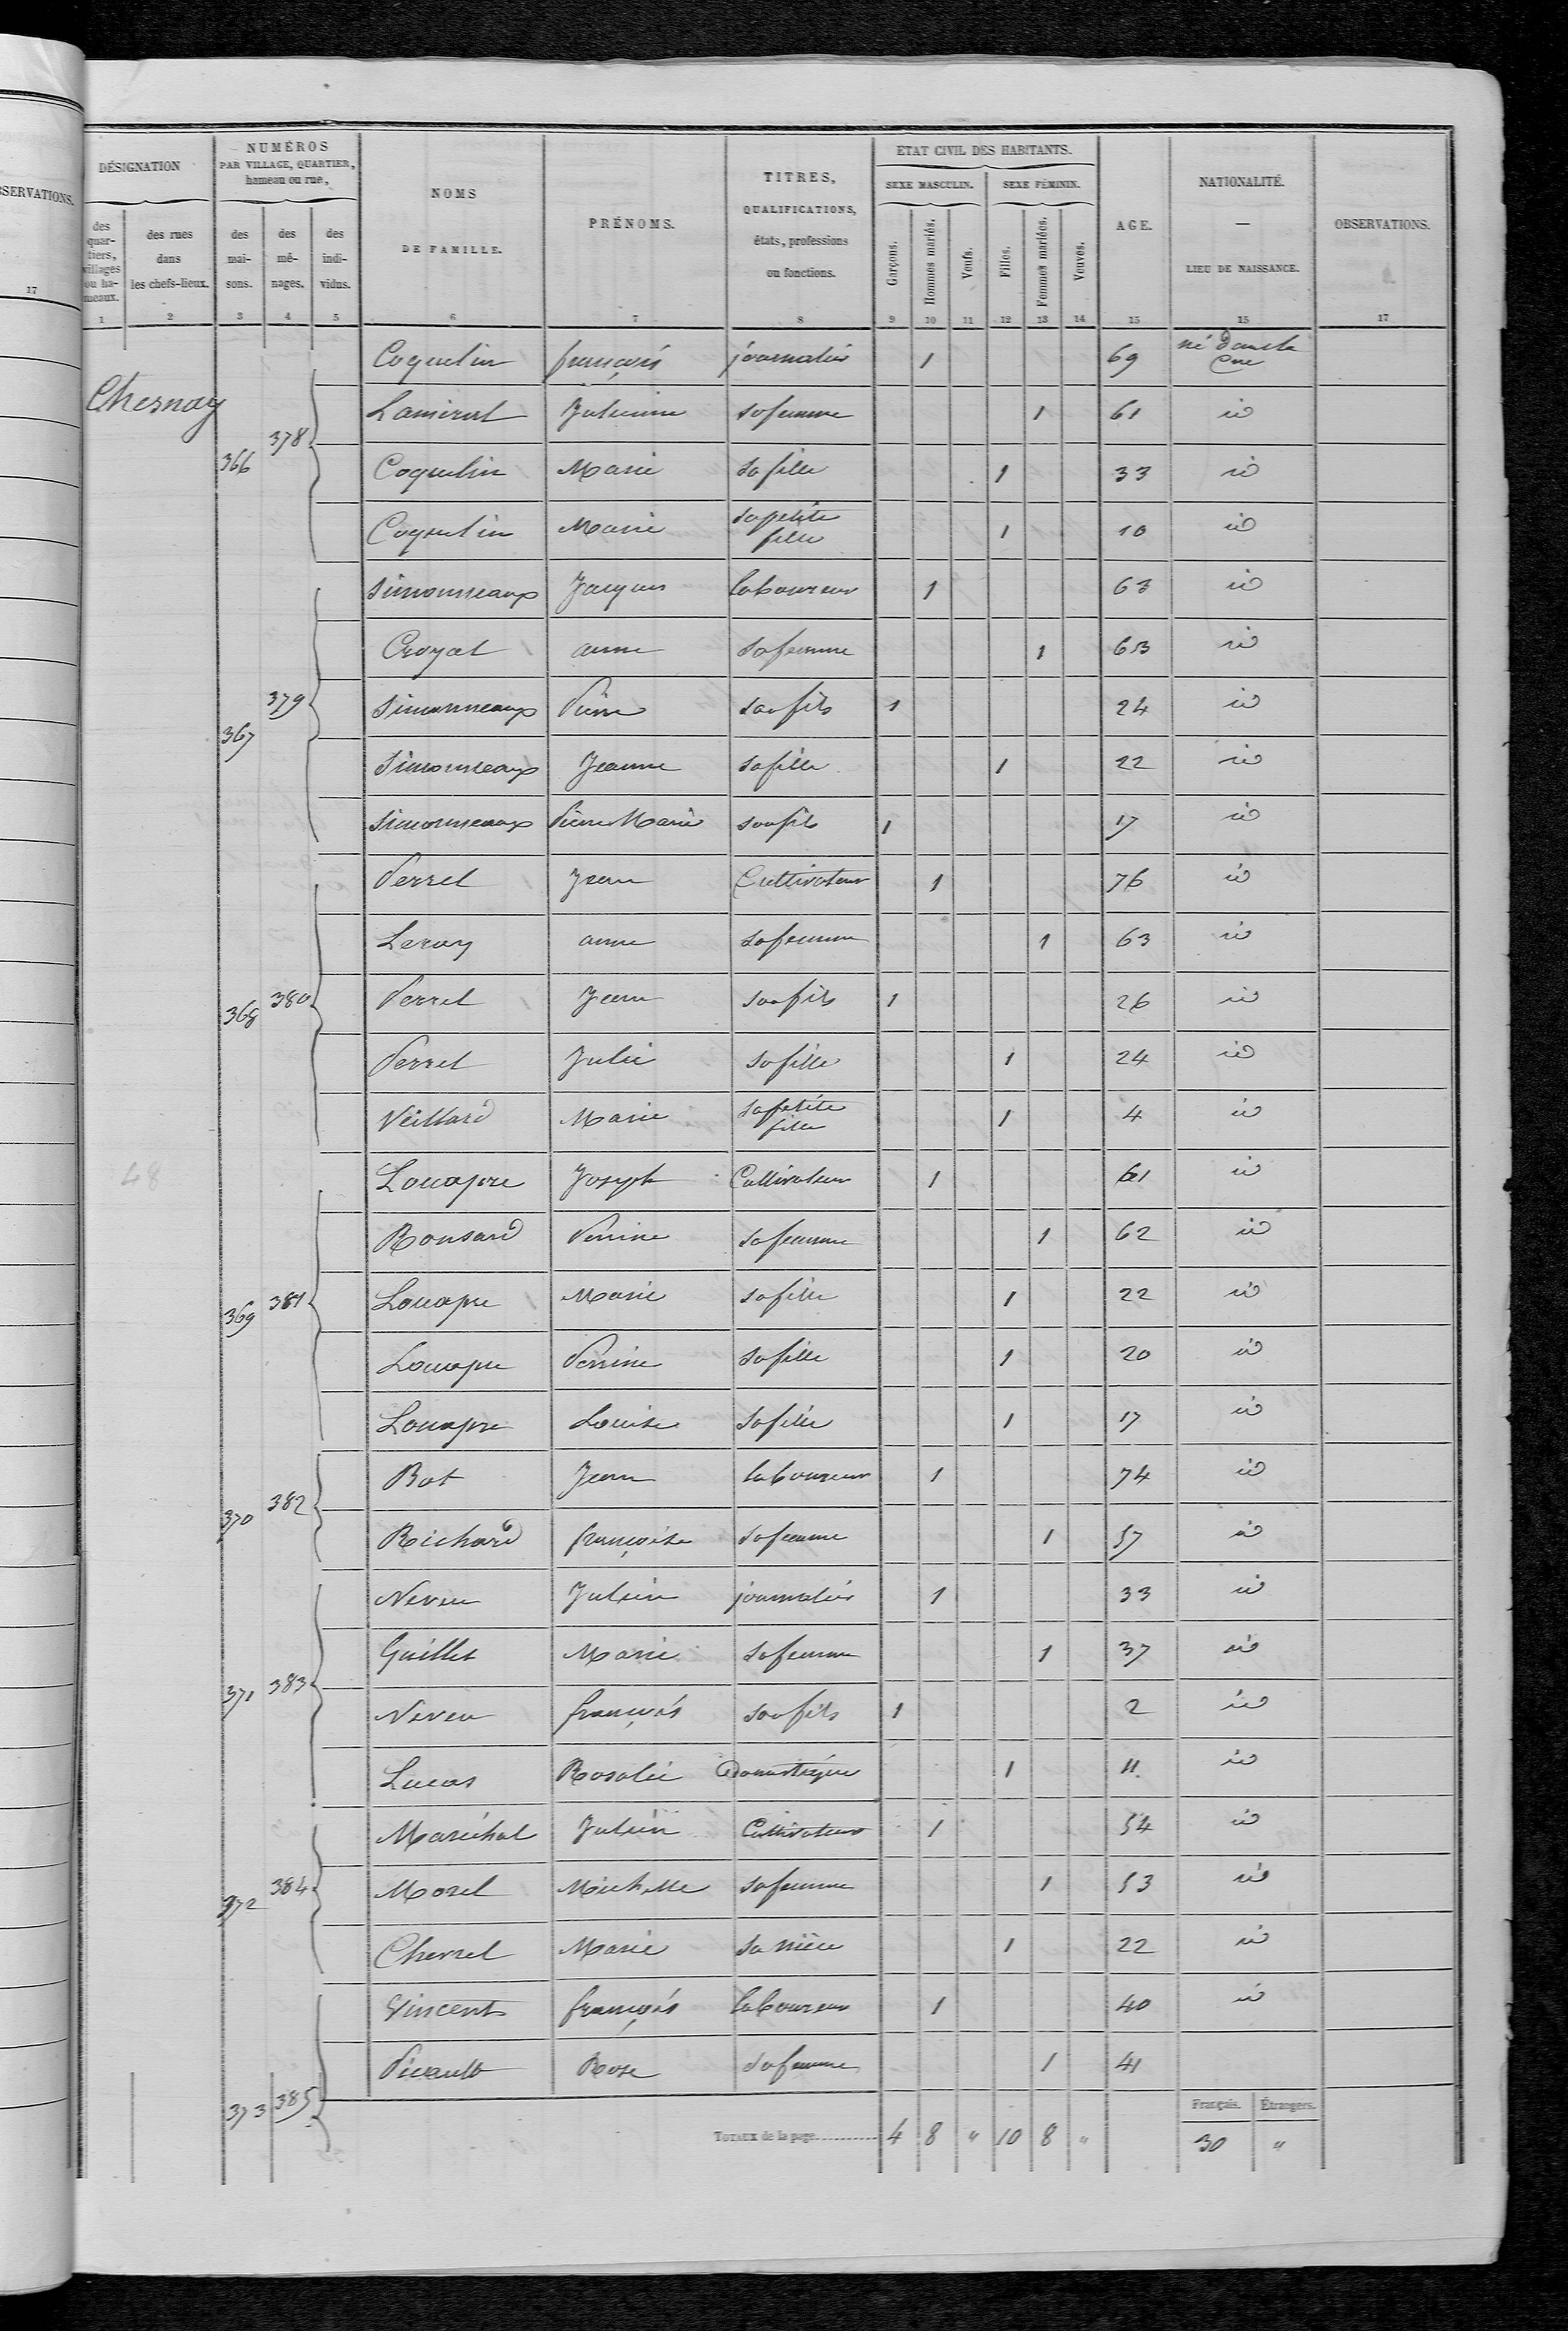 OBSERVATIONS.
17
DÉSIGNATION
NUMÉROS
PAR VILLAGE, QUARTIER,
hameau ou rue,
NOMS
DE FAMILLE.
PRÉNOMS.
TITRES,
QUALIFICATIONS,
états, professions
ou fonctions.
ETAT CIVIL DES HABITANTS.
SEXE MASCULIN. SEXE FÉMININ.
AGE.
NATIONALITÉ.
—
LIEU DE NAISSANCE.
OBSERVATIONS.
des
quar-
tiers,
villages
ou ha-
meaux.
des rues
dans
les chefs-lieux.
des
mai-
sons.
des
mé-
nages.
des
indi-
vidus.
Garçons.
Hommes mariés.
Veufs.
Filles.
Femmes mariées.
Veuves.
1 2 3 4 5 6 7 8 9 10 11 12 13 14 15 15 17
Chesnay
366 378
Coquelin françois journalier 1 69 né dans la Cne
Lamirut Julienne sa femme 1 61 id
Coquelin Marie sa fille 1 33 id
Coquelin Marie sa petite fille 1 10 id
367 379
Simonneaux Jacques laboureur 1 63 id
Croyal anne sa femme 1 63 id
Simonneaux Pierre son fils 1 24 id
Simonneaux Jeanne sa fille 1 22 id
Simonneaux Pierre Marie son fils 1 17 id
368 380
Perrel Jean Cultivateur 1 76 id
Leray anne sa femme 1 63 id
Perrel Jean son fils 1 26 id
Perrel Julie sa fille 1 24 id
Veillard Marie sa petite fille 1 4 id
369 381
Louapre Joseph Cultivateur 1 61 id
Ronsard Perrine sa femme 1 62 id
Louapre Marie sa fille 1 22 id
Louapre Perrine sa fille 1 20 id
Louapre Louise sa fille 1 17 id
370 382
Bot Jean laboureur 1 74 id
Richard françoise sa femme 1 57 id
371 383
Neveu Julien journalier 1 33 id
Guillet Marie sa femme 1 37 id
Neveu françois son fils 1 2 id
Lucas Rosalie Domestique 1 11 id
372 384
Maréchal Julien Cultivateur 1 54 id
Morel Michelle sa femme 1 53 id
Chevrel Marie sa nièce 1 22 id
373 385
Vincent françois laboureur 1 40 id
Picault Rose sa femme 1 41
48
Français. Étrangers.
TOTAUX de la page............ 4 8 " 10 8 " 30 "